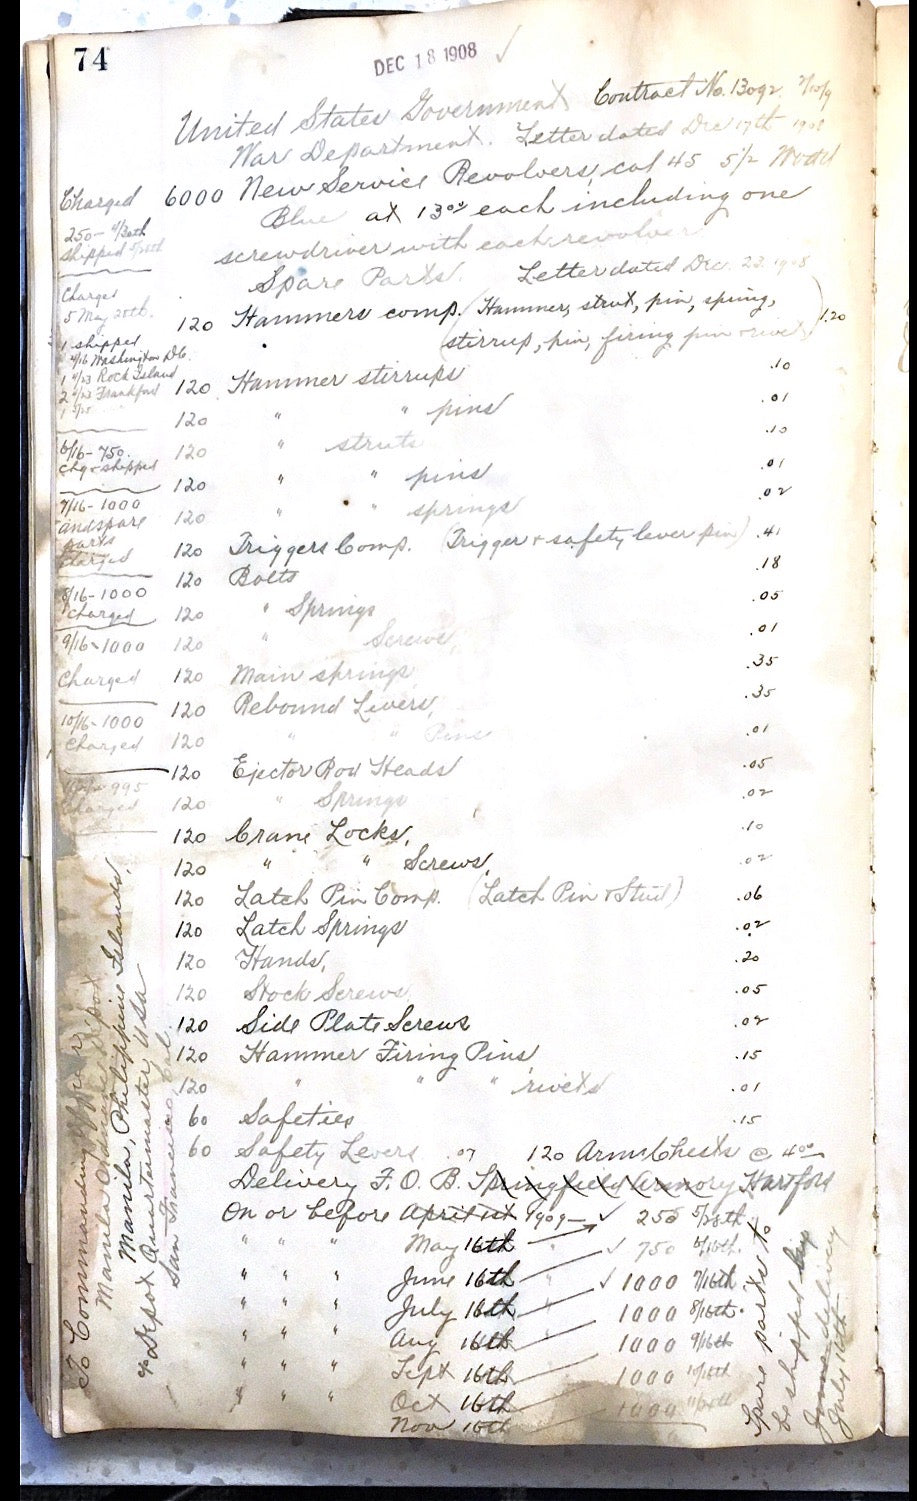 74
DEC 18 1908
United States Government Contract No. 13092
War Department. Letter dated Dec 17th 1908
Charged 6000 New Service Revolvers, cal 45 5 1/2
Blue at 13.00 each including one
screwdriver with each revolver
Spare Parts. Letter dated Dec. 22. 1908
120 Hammers comp. (Hammer, strut, pin, spring,
stirrup, pin, firing pin + rivet) 1.20
120 Hammer stirrups .10
120 " " pins .01
120 " struts .10
120 " " pins .01
120 " " springs .02
120 Triggers Comp. (Trigger + safety lever pin) .41
120 Bolts .18
120 " Springs .05
120 " Screws, .01
120 Main springs, .35
120 Rebound Levers, .35
120 " " Pins .01
120 Ejector Rod Heads .05
120 " Springs .02
120 Crane Locks, .10
120 " " Screws, .02
120 Latch Pin Comp. (Latch Pin + Stud) .06
120 Latch Springs .02
120 Hands, .20
120 Stock Screws .05
120 Side Plate Screws .02
120 Hammer Firing Pins .15
120 " " " rivets .01
60 Safeties .15
60 Safety Levers .07 120 Arm Chests @ 4.00
Delivery F.O.B. Springfield Armory Hartford
On or before April 1st 1909 — ✓ 250 5/28th
" " " May 16th ✓ 750 6/16th
" " " June 16th " ✓ 1000 7/16th
" " " July 16th " 1000 8/16th
" " " Aug 16th " 1000 9/16th
" " " Sept 16th 1000 10/16th
" " " Oct 16th 1000
Nov 16th
250 -
shipped
Charged
5 May 25th.
1 shipped
4/16 Washington D.C.
1 4/23 Rock Island
2 4/23 Frankford
6/16 - 750.
Chg + shipped
7/16 - 1000
and spare
parts
Charged
8/16 - 1000
Charged
9/16 - 1000
Charged
10/16 - 1000
Charged
995
Charged
to Commanding Officer
Manila Ordnance Depot
Manila, Philippine Islands,
Depot Quartermaster, USA
San Francisco, Cal.
Spare parts to
be shipped
June delivery
July 16th